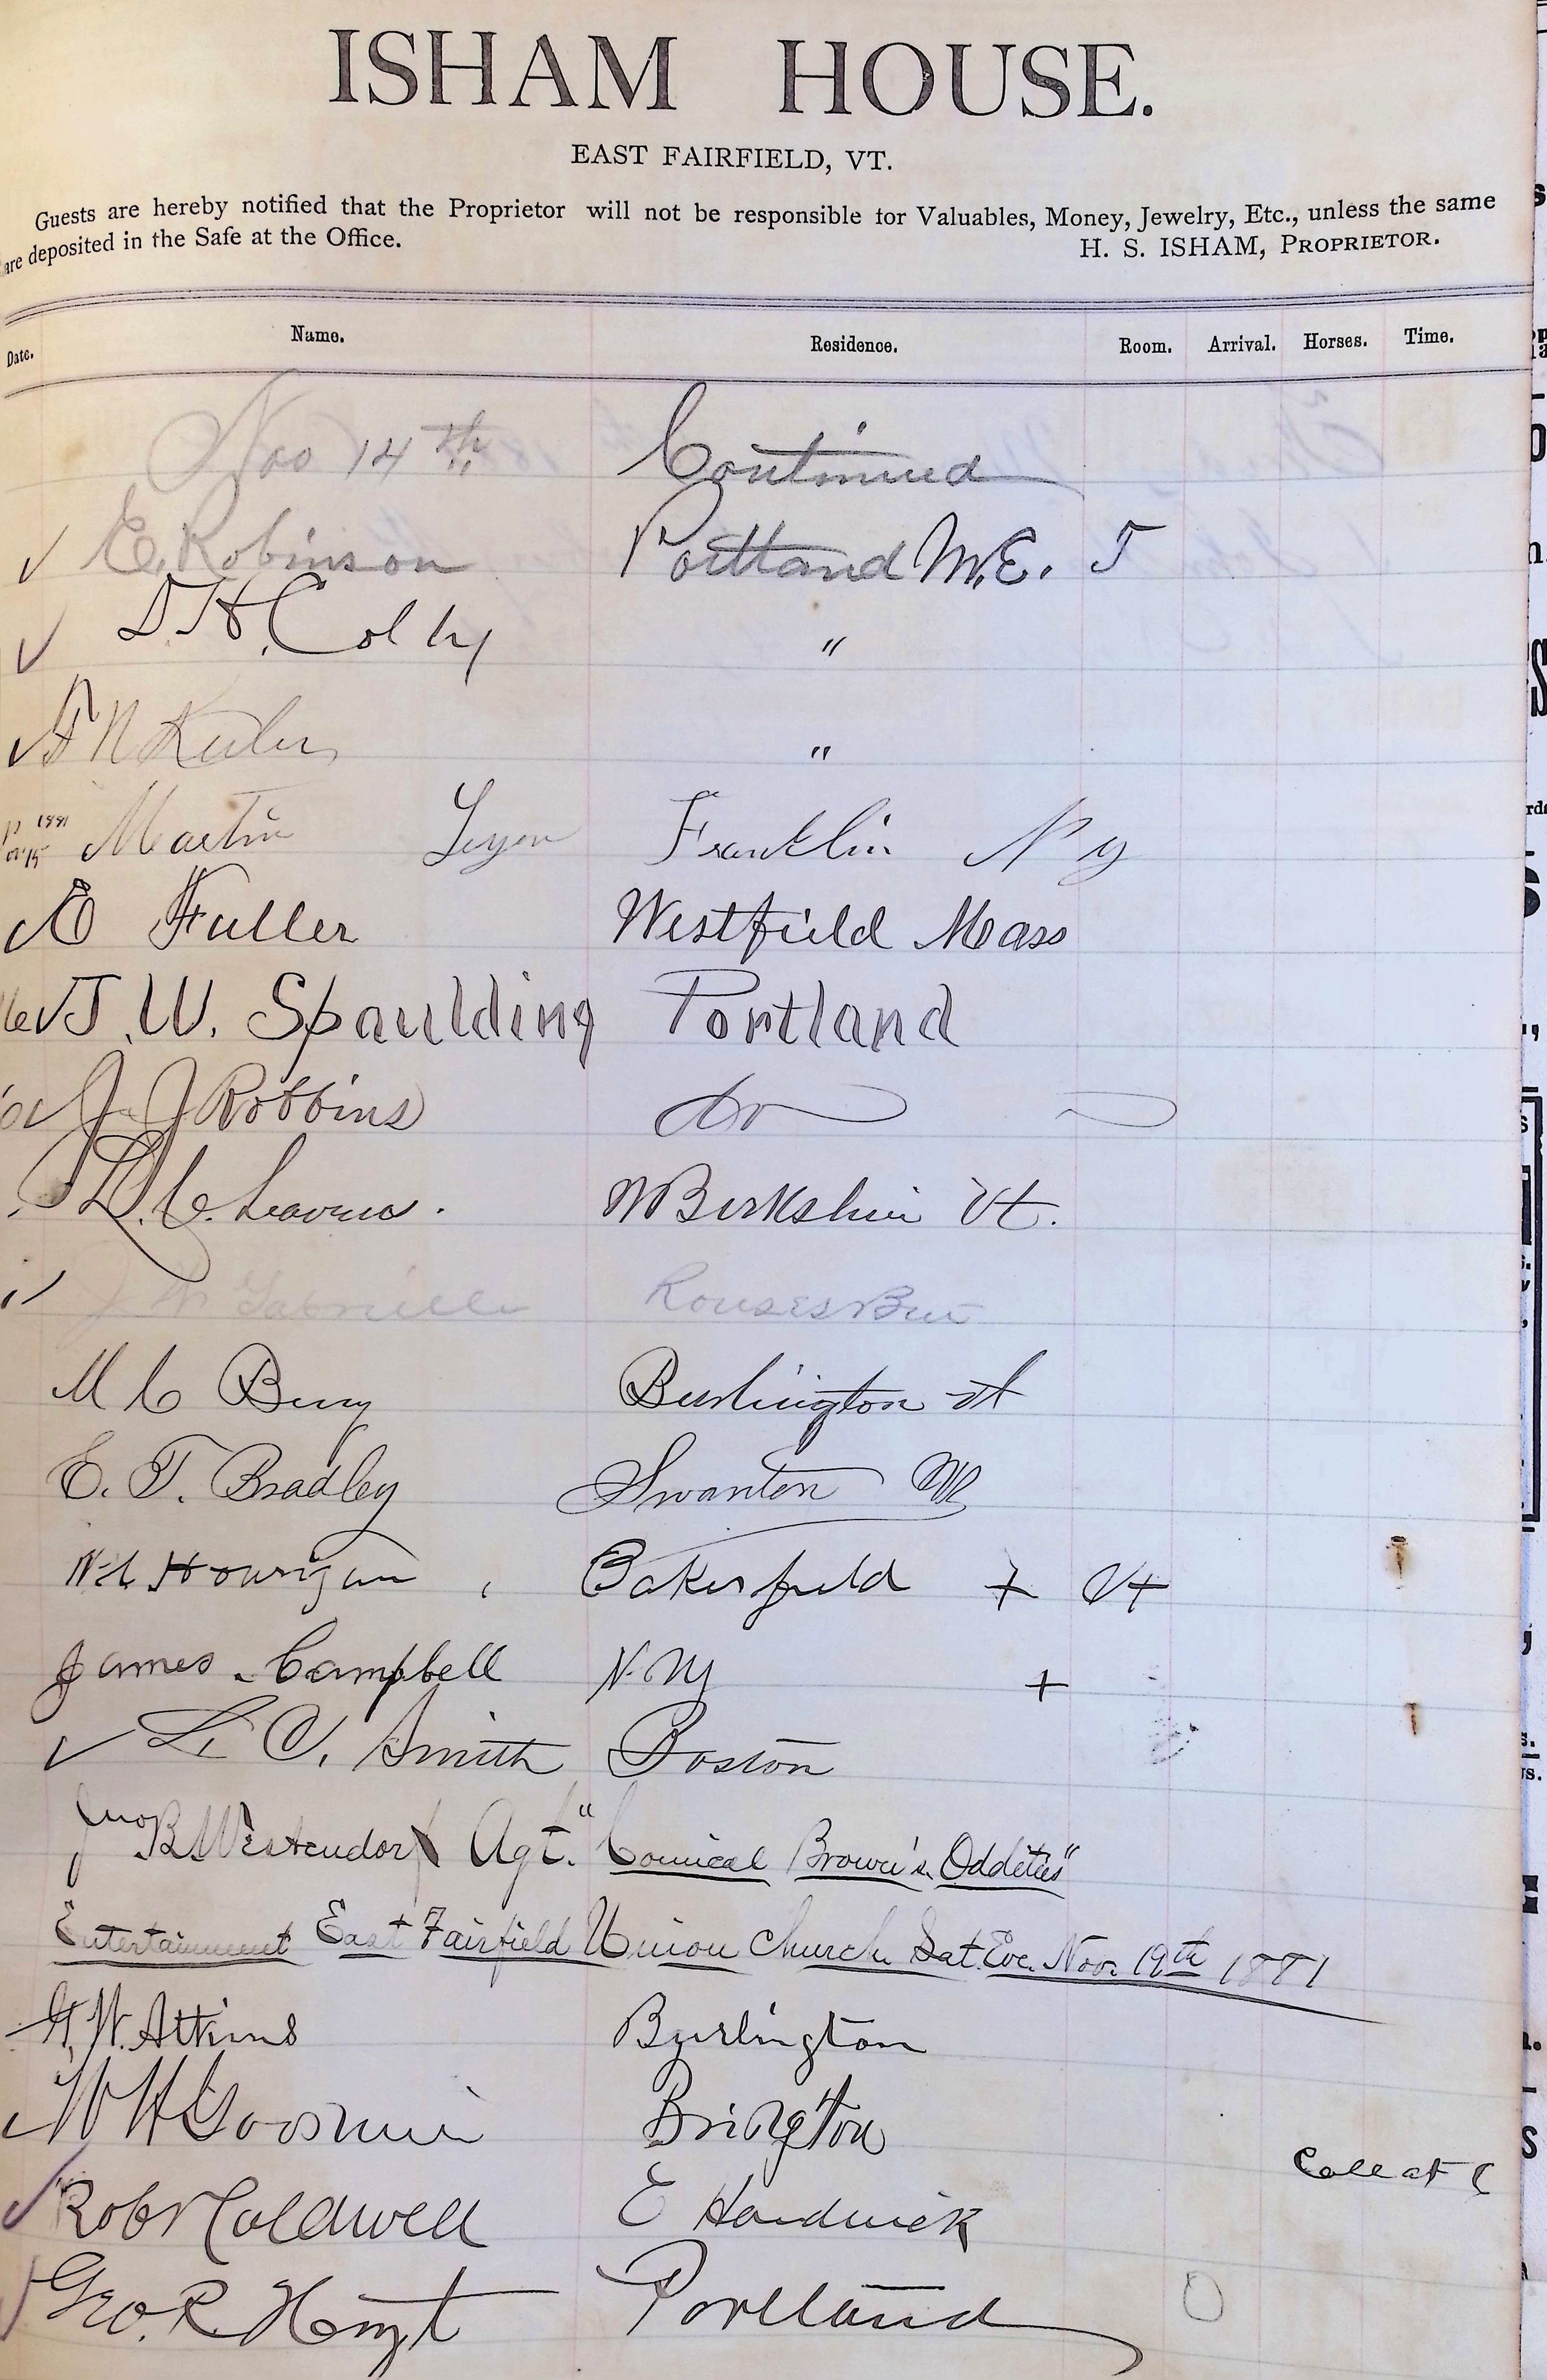 ISHAM HOUSE.
EAST FAIRFIELD, VT.
Guests are hereby notified that the Proprietor will not be responsible for Valuables, Money, Jewelry, Etc., unless the same
are deposited in the Safe at the Office. H. S. ISHAM, PROPRIETOR.
Date. Name. Residence. Room. Arrival. Horses. Time.
Nov 14th Continued
E. Robinson Portland M.E. T
D. H. Colby "
"
1881 Martin Franklin N Y
E Fuller Westfield Mass
J. W. Spaulding Portland
J. J. Robbins do
W Berkshire Vt.
M C Berry Burlington Vt
E. T. Bradley Swanton
Hourigan Bakersfield + Vt
James Campbell N. Y +
L. C. Smith Boston
Jno B. Westendorf Agt. "Comical Brown's Oddities"
Entertainment East Fairfield Union Church Sat. Eve. Nov. 19th 1881
W. Atkins Burlington
W H Goodwin
Call at
Robt Caldwell E Hardwick
Geo. R. Hoyt Portland